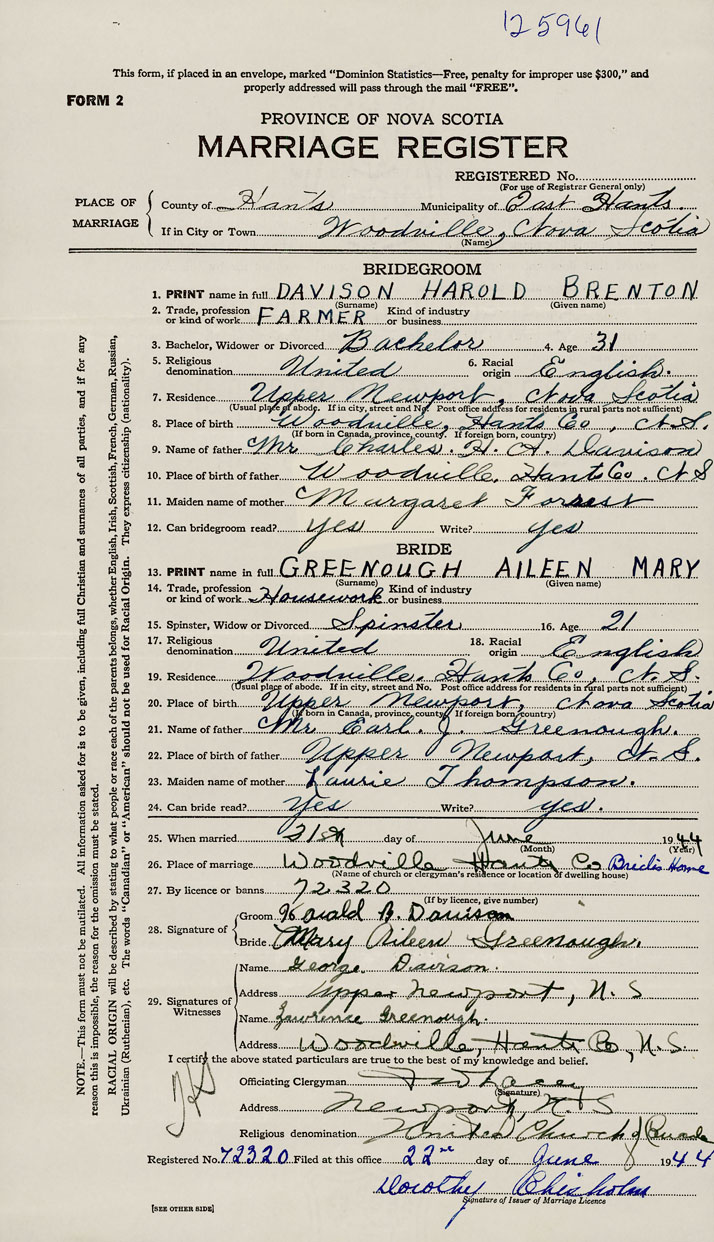 125961
This form, if placed in an envelope, marked "Dominion Statistics—Free, penalty for improper use $300," and
properly addressed will pass through the mail "FREE".
FORM 2
PROVINCE OF NOVA SCOTIA
MARRIAGE REGISTER
REGISTERED No.
(For use of Registrar General only)
PLACE OF MARRIAGE
County of Hants Municipality of East Hants
If in City or Town Woodville, Nova Scotia
(Name)
BRIDEGROOM
1. PRINT name in full DAVISON HAROLD BRENTON
(Surname) (Given name)
2. Trade, profession or kind of work FARMER Kind of industry or business
3. Bachelor, Widower or Divorced Bachelor 4. Age 31
5. Religious denomination United 6. Racial origin English.
7. Residence Upper Newport, Nova Scotia
(Usual place of abode. If in city, street and No. Post office address for residents in rural parts not sufficient)
8. Place of birth Woodville, Hants Co, N.S.
(If born in Canada, province, county. If foreign born, country)
9. Name of father Mr Charles. H. A. Davison
10. Place of birth of father Woodville, Hants Co. N S
11. Maiden name of mother Margaret Forrest
12. Can bridegroom read? yes Write? yes
BRIDE
13. PRINT name in full GREENOUGH AILEEN MARY
(Surname) (Given name)
14. Trade, profession or kind of work Housework Kind of industry or business
15. Spinster, Widow or Divorced Spinster 16. Age 21
17. Religious denomination United 18. Racial origin English
19. Residence Woodville. Hants Co, N.S.
(Usual place of abode. If in city, street and No. Post office address for residents in rural parts not sufficient)
20. Place of birth Upper Newport, Nova Scotia
(If born in Canada, province, county. If foreign born, country)
21. Name of father Mr Earl. J. Greenough.
22. Place of birth of father Upper Newport, N.S.
23. Maiden name of mother Laurie Thompson.
24. Can bride read? Yes Write? yes.
25. When married 21st day of June 1944
(Month) (Year)
26. Place of marriage Woodville Hants Co Bride's Home
(Name of church or clergyman's residence or location of dwelling house)
27. By licence or banns 72320
(If by licence, give number)
28. Signature of
Groom Harold B. Davison
Bride Mary Aileen Greenough.
29. Signatures of Witnesses
Name George Davison.
Address Upper Newport, N. S
Name Lawrence Greenough.
Address Woodville Hants Co, N.S.
I certify the above stated particulars are true to the best of my knowledge and belief.
Officiating Clergyman
(Signature)
Address Newport, N.S
Religious denomination United Church of Canada
Registered No. 72320 Filed at this office 22nd day of June 1944
Dorothy Chisholm
Signature of Issuer of Marriage Licence
[SEE OTHER SIDE]
NOTE.—This form must not be mutilated. All information asked for is to be given, including full Christian and surnames of all parties, and if for any
reason this is impossible, the reason for the omission must be stated.
RACIAL ORIGIN will be described by stating to what people or race each of the parents belongs, whether English, Irish, Scottish, French, German, Russian,
Ukrainian (Ruthenian), etc. The words "Canadian" or "American" should not be used for Racial Origin. They express citizenship (nationality).